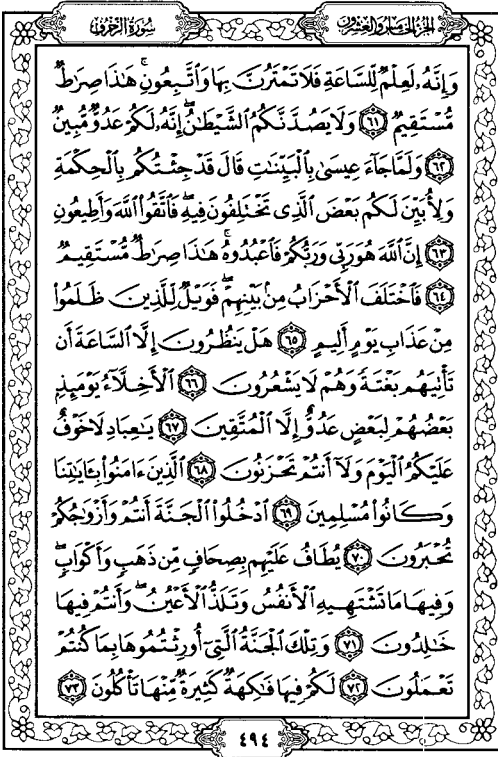 الجزء الخامس والعشرون
سورة الزخرف
وَإِنَّهُۥ لَعِلْمٌ لِّلسَّاعَةِ فَلَا تَمْتَرُنَّ بِهَا وَٱتَّبِعُونِ ۚ هَـٰذَا صِرَٰطٌ
مُّسْتَقِيمٌ ۝٦١ وَلَا يَصُدَّنَّكُمُ ٱلشَّيْطَـٰنُ ۖ إِنَّهُۥ لَكُمْ عَدُوٌّ مُّبِينٌ
۝٦٢ وَلَمَّا جَآءَ عِيسَىٰ بِٱلْبَيِّنَـٰتِ قَالَ قَدْ جِئْتُكُم بِٱلْحِكْمَةِ
وَلِأُبَيِّنَ لَكُم بَعْضَ ٱلَّذِى تَخْتَلِفُونَ فِيهِ ۖ فَٱتَّقُوا۟ ٱللَّهَ وَأَطِيعُونِ
۝٦٣ إِنَّ ٱللَّهَ هُوَ رَبِّى وَرَبُّكُمْ فَٱعْبُدُوهُ ۚ هَـٰذَا صِرَٰطٌ مُّسْتَقِيمٌ
۝٦٤ فَٱخْتَلَفَ ٱلْأَحْزَابُ مِنۢ بَيْنِهِمْ ۖ فَوَيْلٌ لِّلَّذِينَ ظَلَمُوا۟
مِنْ عَذَابِ يَوْمٍ أَلِيمٍ ۝٦٥ هَلْ يَنظُرُونَ إِلَّا ٱلسَّاعَةَ أَن
تَأْتِيَهُم بَغْتَةً وَهُمْ لَا يَشْعُرُونَ ۝٦٦ ٱلْأَخِلَّآءُ يَوْمَئِذٍۭ
بَعْضُهُمْ لِبَعْضٍ عَدُوٌّ إِلَّا ٱلْمُتَّقِينَ ۝٦٧ يَـٰعِبَادِ لَا خَوْفٌ
عَلَيْكُمُ ٱلْيَوْمَ وَلَآ أَنتُمْ تَحْزَنُونَ ۝٦٨ ٱلَّذِينَ ءَامَنُوا۟ بِـَٔايَـٰتِنَا
وَكَانُوا۟ مُسْلِمِينَ ۝٦٩ ٱدْخُلُوا۟ ٱلْجَنَّةَ أَنتُمْ وَأَزْوَٰجُكُمْ
تُحْبَرُونَ ۝٧٠ يُطَافُ عَلَيْهِم بِصِحَافٍ مِّن ذَهَبٍ وَأَكْوَابٍ ۖ
وَفِيهَا مَا تَشْتَهِيهِ ٱلْأَنفُسُ وَتَلَذُّ ٱلْأَعْيُنُ ۖ وَأَنتُمْ فِيهَا
خَـٰلِدُونَ ۝٧١ وَتِلْكَ ٱلْجَنَّةُ ٱلَّتِىٓ أُورِثْتُمُوهَا بِمَا كُنتُمْ
تَعْمَلُونَ ۝٧٢ لَكُمْ فِيهَا فَـٰكِهَةٌ كَثِيرَةٌ مِّنْهَا تَأْكُلُونَ ۝٧٣
٤٩٤